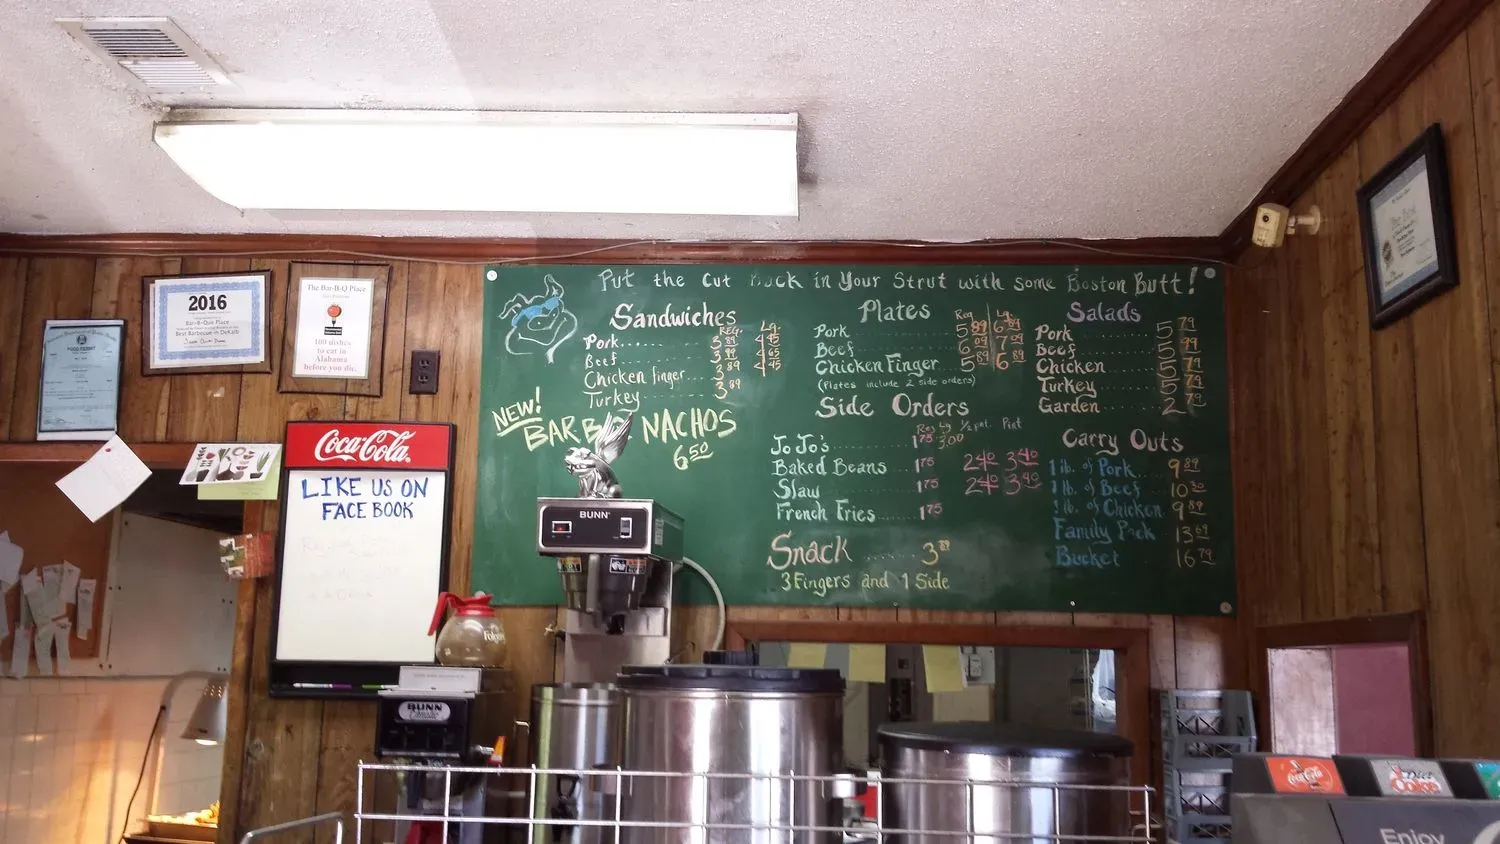 Put the Cut Back in Your Strut with some Boston Butt!
Sandwiches
REG. Lg.
Pork...... 3 89 4 45
Beef...... 3 99 4 65
Chicken finger... 3 89 4 45
Turkey...... 3 89
NEW!
BAR B Q NACHOS
6 50
Plates
Reg Lg.
Pork 5 89 6 89
Beef 6 09 7 09
Chicken Finger 5 89 6 89
(Plates include 2 side orders)
Side Orders
Reg Lg ½ pt. Pint
Jo Jo's 1 75 3.00
Baked Beans 1 75 2 40 3 40
Slaw 1 75 2 40 3 40
French Fries 1 75
Snack ...... 3 89
3 Fingers and 1 Side
Salads
Pork 5 79
Beef 5 99
Chicken 5 79
Turkey 5 79
Garden 2 79
Carry Outs
1 lb. of Pork 9 89
1 lb. of Beef 10 30
1 lb. of Chicken 9 89
Family Pack 13 69
Bucket 16 79
FOOD PERMIT
2016
Bar-B-Que Place
Best Barbecue in DeKalb
The Bar-B-Q Place
100 dishes
to eat in
Alabama
before you die.
Coca-Cola
LIKE US ON
FACE BOOK
BUNN
Folgers
BUNN
Coca-Cola
Diet
Coke
Enjoy